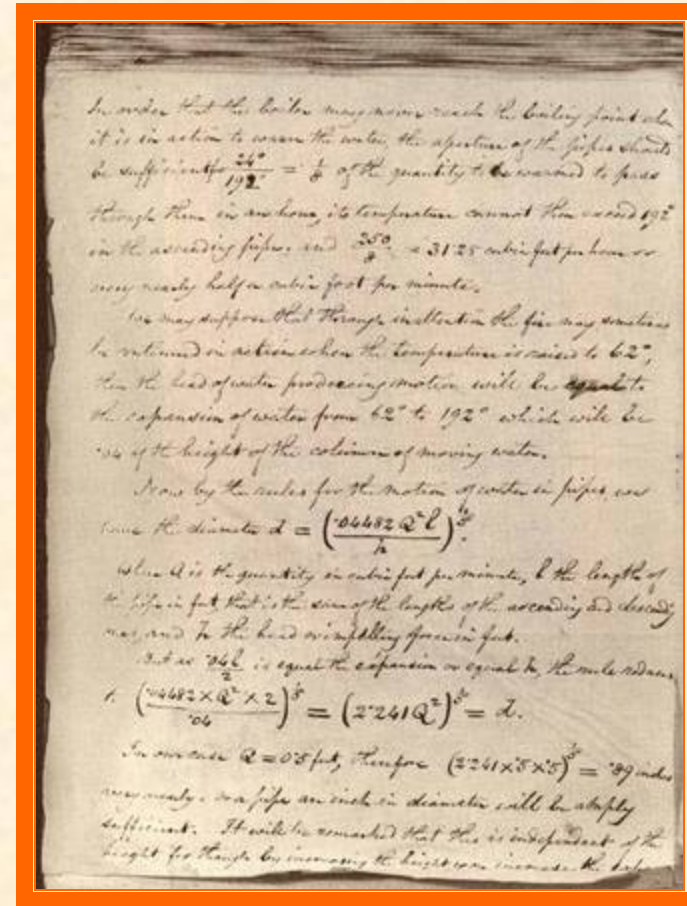 In order that the boiler may never reach the boiling point when
it is in action to warm the water, the aperture of the pipes should
be sufficient for 24°/192° = 1/8 of the quantity to be warmed to pass
through them in an hour, its temperature cannot then exceed 192°
in the ascending pipe. and 250/8 = 31·25 cubic feet per hour or
very nearly half a cubic foot per minute.
We may suppose that through inattention the fire may sometimes
be retained in action when the temperature is raised to 62°,
then the head of water producing motion will be equal to
the expansion of water from 62° to 192° which will be
·04 of the height of the column of moving water.
Now by the rules for the motion of water in pipes, we
have the diameter d = (·04482 Q² l / h)^(1/5).
when Q is the quantity in cubic feet per minute, l the length of
the pipe in feet, that is the sum of the lengths of the ascending and descending
ones, and h the head or impelling force in feet.
But as ·04 l / 2 is equal the expansion or equal h, the rule reduces
to (·04482 × Q² × 2 / ·04)^(1/5) = (2·241 Q²)^(1/5) = d.
In our case Q = 0·5 feet, therefore (2·241 × ·5 × ·5)^(1/5) = ·89 inches
very nearly. or a pipe an inch in diameter will be amply
sufficient. It will be remarked that this is independent of the
height for though by increasing the height we increase the